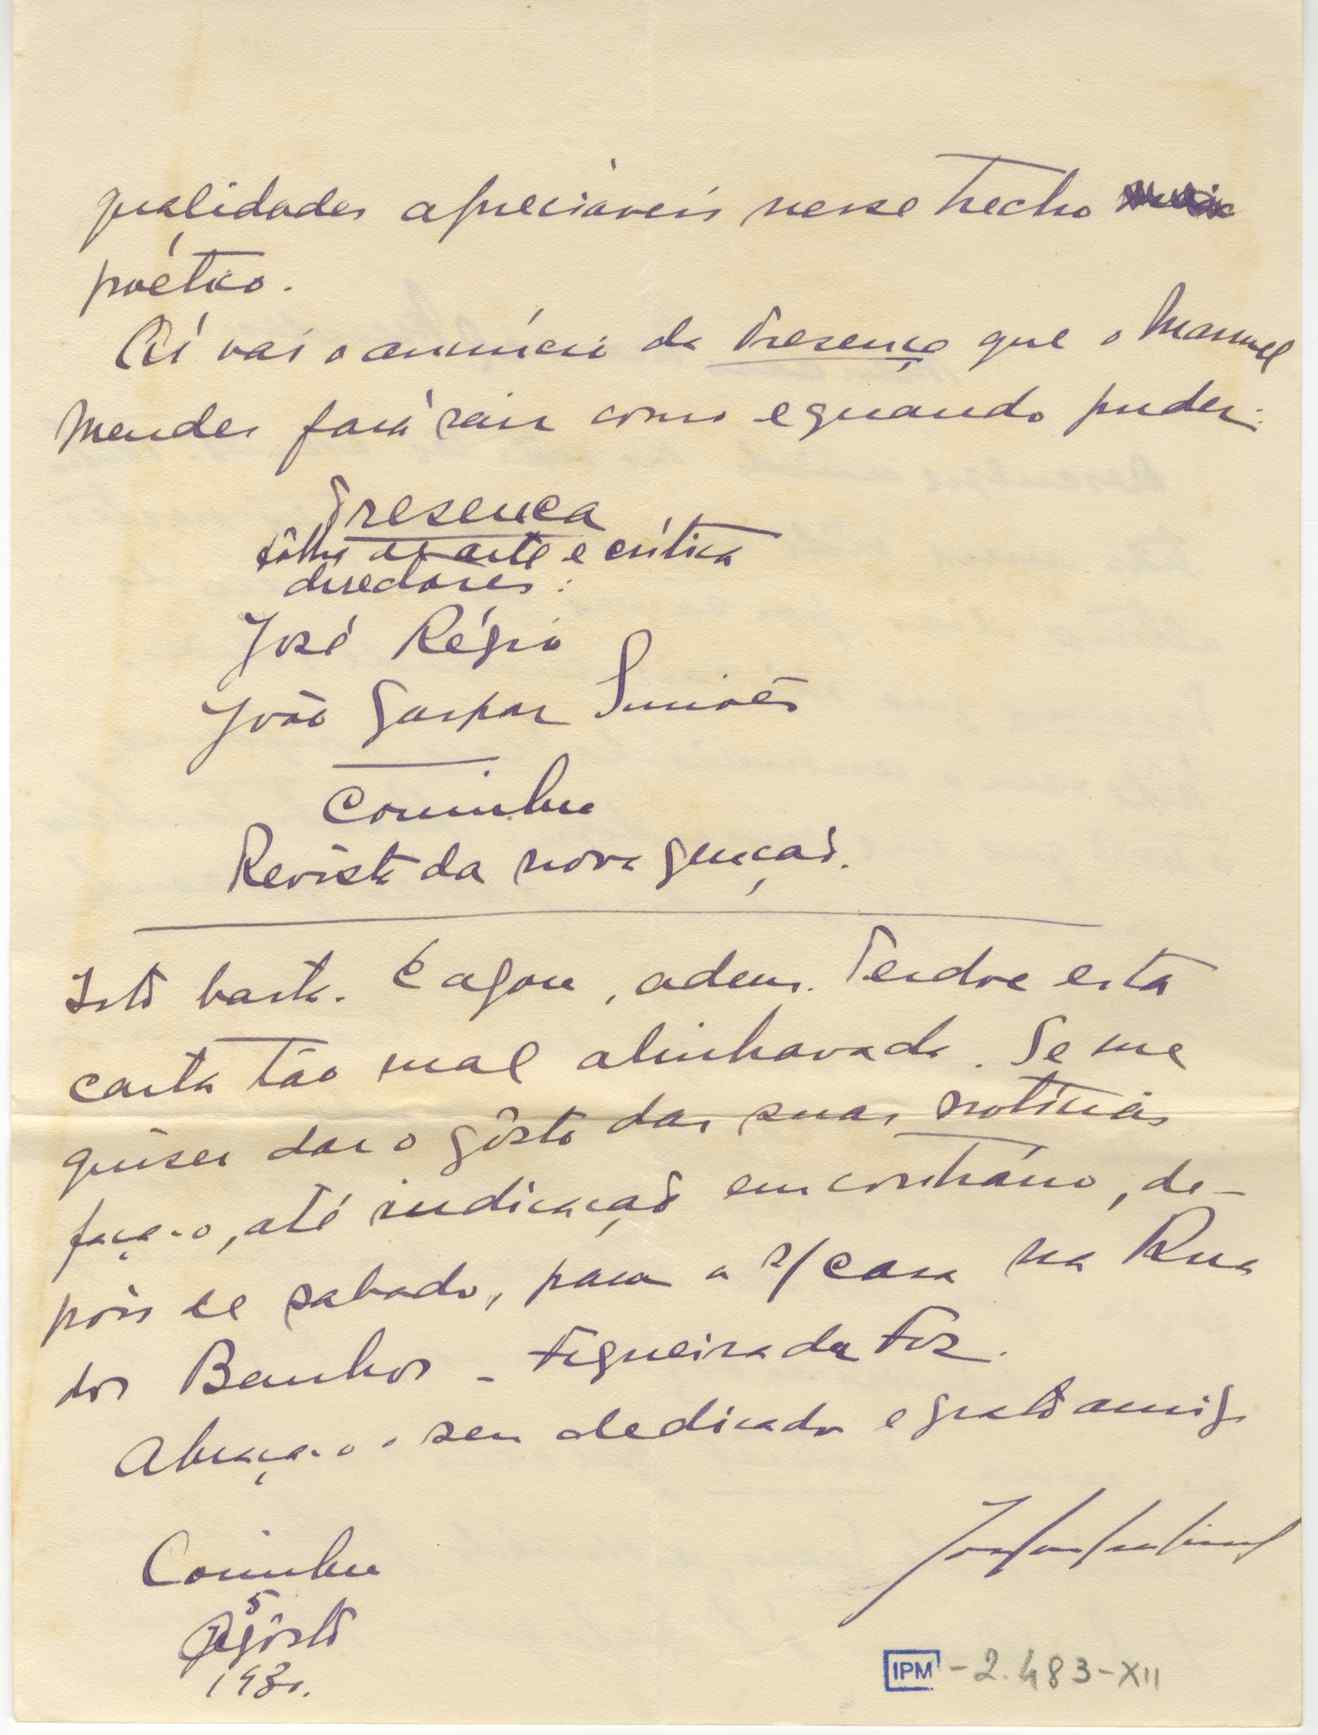 qualidades apreciáveis nesse trecho
poético.
Aí vai o anúncio da Presença que o Manuel
Mendes fará sair como e quando puder:
Presença
fôlha de arte e crítica
directores:
José Régio
João Gaspar Simões
Coimbra
Revista da nova geração.
Isto basta. E agora, adeus. Perdoe esta
carta tão mal alinhavada. Se me
quiser dar o gôsto das suas notícias
faça-o, até indicação em contrário, de-
pois de sabado, para a s/ casa na Rua
dos Banhos - Figueira da Foz.
Abraça-o o seu dedicado e grato amigo
Coimbra
5
Agôsto
1930.
IPM - 2.483-XII